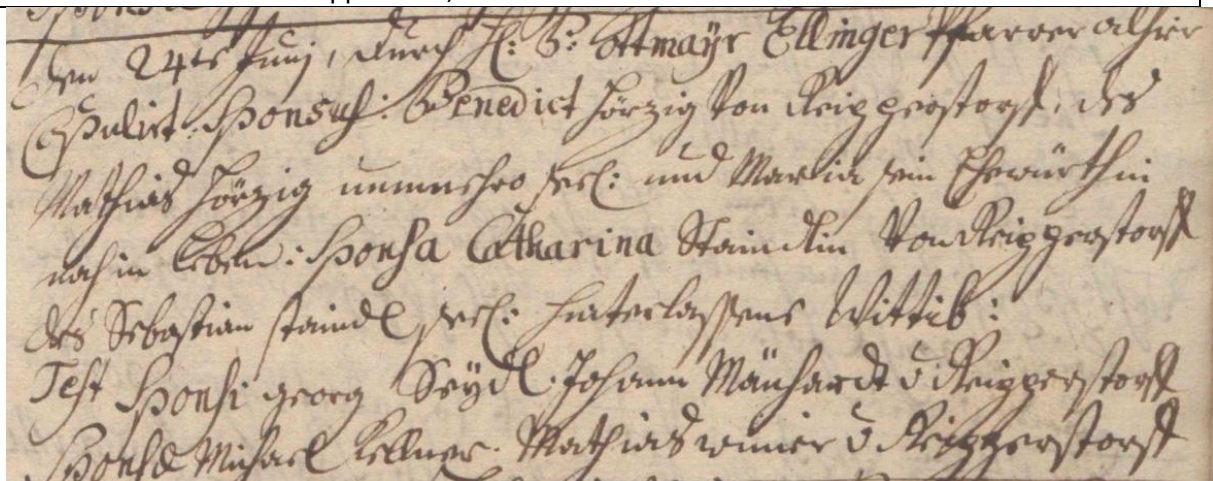 Den 24ts Junj, durch H: P: Ottmayr Ellinger Pfarrer alhier
Copulirt: Sponsus: Benedict Hörzig von Reipperstorff des
Mathias Hörzig nunmehro seel: und Maria sein Ehewürthin
noch in leben: Sponsa Catharina Staindlin von Reipperstorff
des Sebastian Staindl seel: hinterlassene Wittib:
Test Sponsi georg Seydl. Johann Mänhardt v Reipperstorff
Sponsae Michael Kellner. Mathias v Reipperstorff